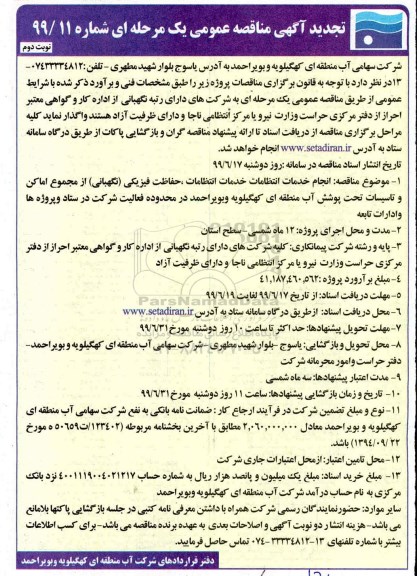 تجدید آگهی مناقصه عمومی یک مرحله ای شماره ۹۹/۱۱
نوبت دوم
شرکت سهامی آب منطقه ای کهگیلویه و بویراحمد به آدرس یاسوج بلوار شهید مطهری - تلفن: ۳۳۳۳۴۸۱۲-۰۷۴
۱۳در نظر دارد با توجه به قانون برگزاری مناقصات پروژه زیر را طبق مشخصات فنی و برآورد ذکر شده با شرایط
عمومی از طریق مناقصه عمومی یک مرحله ای به شرکت های دارای رتبه نگهبانی از اداره کار و گواهی معتبر
احراز از دفتر مرکزی حراست وزارت نیرو یا مرکز انتظامی ناجا و دارای ظرفیت آزاد هستند واگذار نماید کلیه
مراحل برگزاری مناقصه از دریافت اسناد تا ارائه پیشنهاد مناقصه گران و بازگشایی پاکات از طریق درگاه سامانه
ستاد به آدرس www.setadiran.ir انجام خواهد شد.
تاریخ انتشار اسناد مناقصه در سامانه :روز دوشنبه ۹۹/۶/۱۷
۱- موضوع مناقصه: انجام خدمات انتظامات خدمات انتظامات ،حفاظت فیزیکی (نگهبانی) از مجموع اماکن
و تاسیسات تحت پوشش آب منطقه ای کهگیلویه وبویراحمد در محدوده فعالیت شرکت در ستاد وپروژه ها
وادارات تابعه
۲- مدت و محل اجرای پروژه: ۱۲ ماه شمسی -سطح استان
۳- پایه و رشته شرکت پیمانکاری: کلیه شرکت های دارای رتبه نگهبانی از اداره کار و گواهی معتبر احراز از دفتر
مرکزی حراست وزارت نیرو یا مرکز انتظامی ناجا و دارای ظرفیت آزاد
۴- مبلغ برآورد پروژه :۴۱,۱۸۷,۴۶۰,۵۶۲
۵- مهلت دریافت اسناد: از تاریخ ۹۹/۶/۱۷ لغایت ۹۹/۶/۱۹
۶- محل دریافت اسناد: از طریق درگاه سامانه ستاد به آدرس www.setadiran.ir
۷- مهلت تحویل پیشنهادها: حداکثر تا ساعت ۱۰ روز دوشنبه مورخ ۹۹/۶/۳۱
۸- محل تحویل و بازگشایی: یاسوج -بلوار شهید مطهری - شرکت سهامی آب منطقه ای کهگیلویه و بویراحمد-
دفتر حراست وامور محرمانه شرکت
۹- مدت اعتبار پیشنهادها: سه ماه شمسی
۱۰- تاریخ و زمان بازگشایی پیشنهادها: ساعت ۱۱ روز دوشنبه مورخ ۹۹/۶/۳۱
۱۱- نوع و مبلغ تضمین شرکت در فرآیند ارجاع کار : ضمانت نامه بانکی به نفع شرکت سهامی آب منطقه ای
کهگیلویه و بویراحمد معادل ۲,۰۶۰,۰۰۰,۰۰۰ مطابق با آخرین بخشنامه مربوطه (۱۲۳۴۰۲/ت۵۰۶۵۹ ه مورخ
۱۳۹۴/۰۹/۲۲) باشد.
۱۲-محل تامین اعتبار: ازمحل اعتبارات جاری شرکت
۱۳- مبلغ خرید اسناد: مبلغ یک میلیون و پانصد هزار ریال به شماره حساب ۴۰۰۱۱۱۹۰۰۴۰۲۱۲۱۷ نزد بانک
مرکزی به نام حساب درآمد شرکت آب منطقه ای کهگیلویه وبویراحمد
سایر موارد: حضور نمایندگان رسمی شرکت همراه با داشتن معرفی نامه کتبی در جلسه بازگشایی پاکتها بلامانع
می باشد- هزینه انتشار دو نوبت آگهی و اصلاحات بعدی به عهده برنده مناقصه می باشد- برای کسب اطلاعات
بیشتر با شماره تلفنهای ۱۳-۳۳۳۳۴۸۱۲-۰۷۴ تماس حاصل فرمایید.
دفتر قراردادهای شرکت آب منطقه ای کهگیلویه وبویراحمد